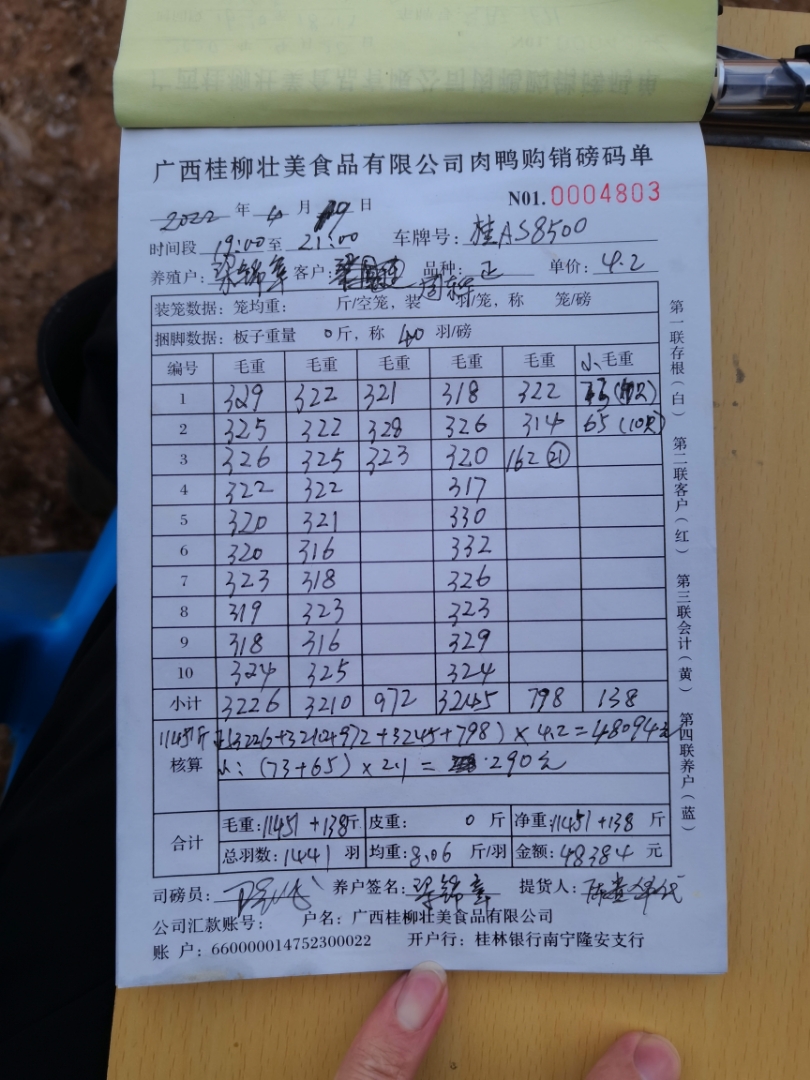 广西桂柳壮美食品有限公司肉鸭购销磅码单
N01.0004803
2022 年 4 月 19 日
时间段 19:00 至 21:00 车牌号: 桂AS8500
养殖户: 梁锦章 客户: 品种: 正 单价: 4.2
装笼数据: 笼均重: 斤/空笼, 装 羽/笼, 称 笼/磅
捆脚数据: 板子重量 0斤, 称 40 羽/磅
编号 毛重 毛重 毛重 毛重 毛重 小毛重
1 329 322 321 318 322
2 325 322 328 326 314 65 (10只)
3 326 325 323 320 162 (21)
4 322 322 317
5 320 321 330
6 320 316 332
7 323 318 326
8 319 323 323
9 318 316 329
10 324 325 324
小计 3226 3210 972 3245 798 138
11451斤 正(3226+3210+972+3245+798) × 4.2 = 48094元
核算 小: (73+65) × 2.1 = 290元
合计 毛重: 11451+138斤 皮重: 0 斤 净重: 11451+138 斤
总羽数: 1441 羽 均重: 8.06 斤/羽 金额: 48384 元
司磅员: 养户签名: 梁锦章 提货人:
公司汇款账号: 户名: 广西桂柳壮美食品有限公司
账 户: 660000014752300022 开户行: 桂林银行南宁隆安支行
第一联存根(白) 第二联客户(红) 第三联会计(黄) 第四联养户(蓝)